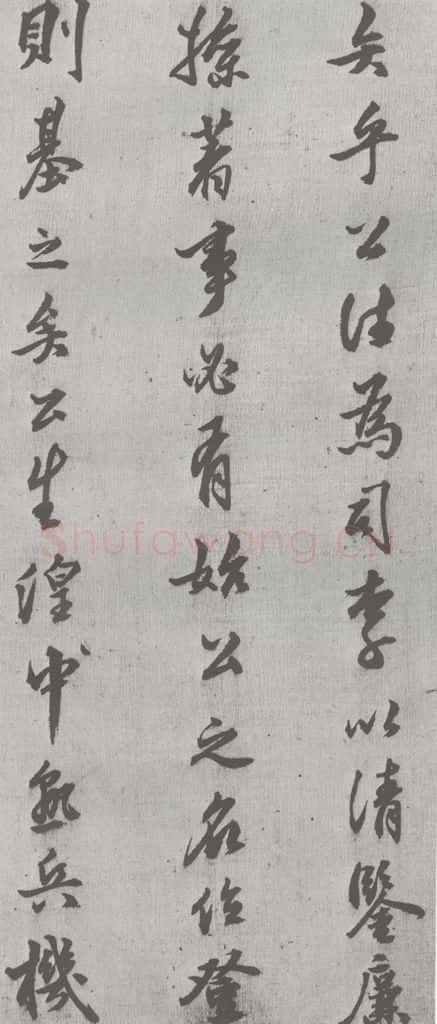 矣乎公往為司李以清鑒廉
操著事必有始公之名位
則基之矣公生湟中熟兵機
Shufawang.CN